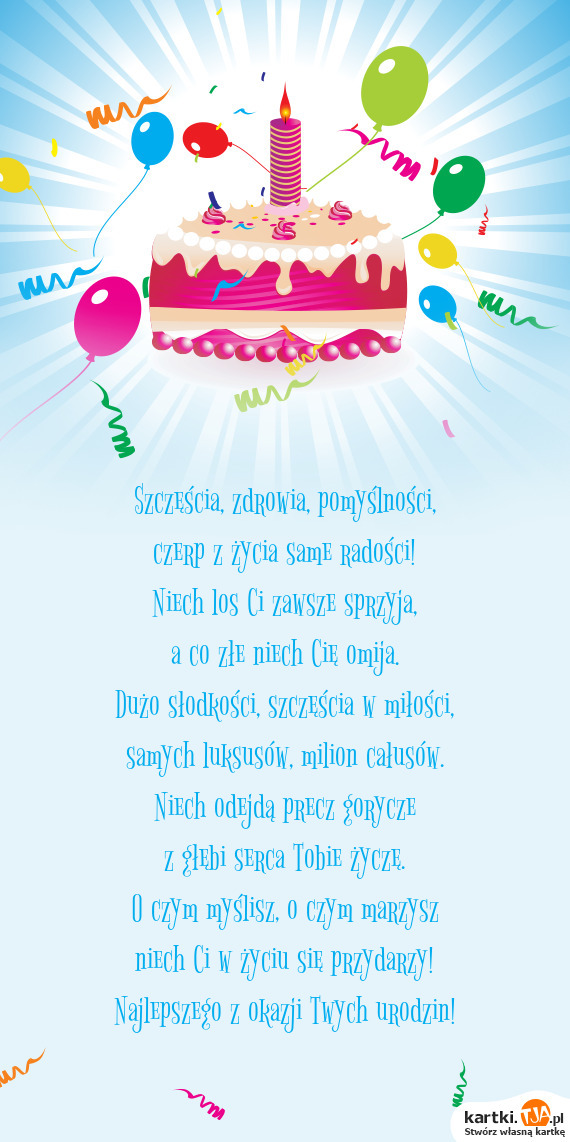 Szczęścia, zdrowia, pomyślności,
czerp z życia same radości!
Niech los Ci zawsze sprzyja,
a co złe niech Cię omija.
Dużo słodkości, szczęścia w miłości,
samych luksusów, milion całusów.
Niech odejdą precz gorycze
z głębi serca Tobie życzę.
O czym myślisz, o czym marzysz
niech Ci w życiu się przydarzy!
Najlepszego z okazji Twych urodzin!
kartki.TJA.pl
Stwórz własną kartkę